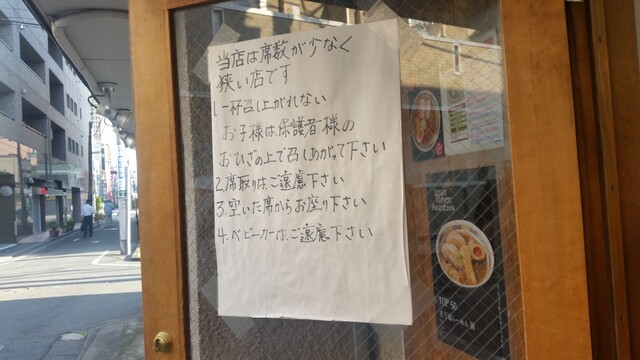 当店は席数が少なく
狭い店です
1. 一杯召し上がれない
お子様は、保護者様の
おひざの上で召しあがって下さい
2. 席取りはご遠慮下さい
3. 空いた席からお座り下さい
4. ベビーカーは、ご遠慮下さい
Ramen
TOP 50